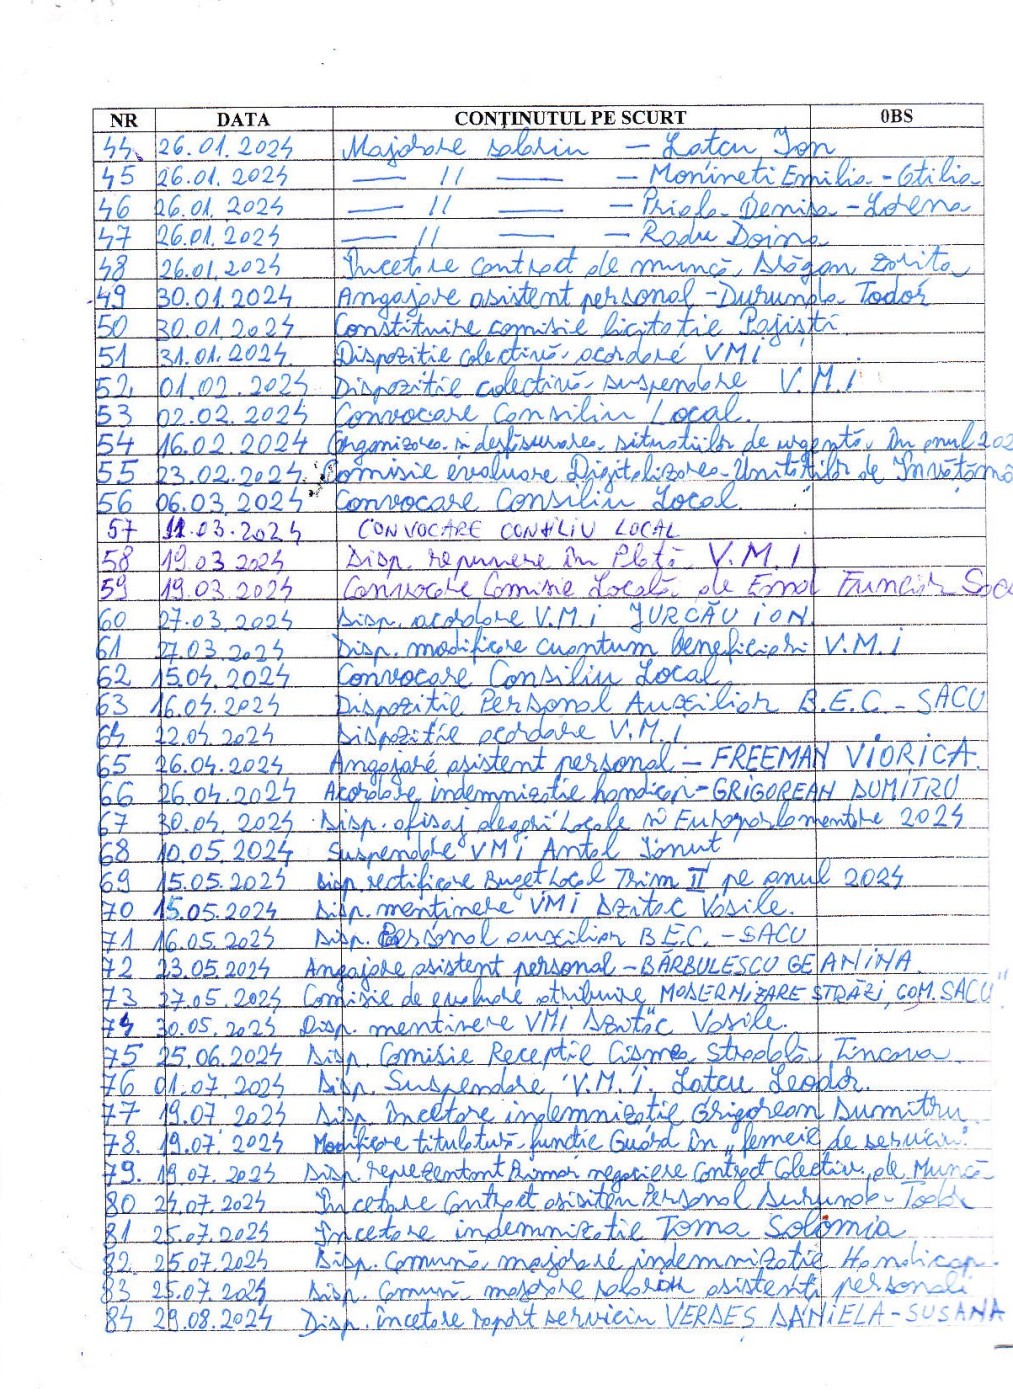 NR DATA CONŢINUTUL PE SCURT 0BS
44. 26.01.2024 Majorare salariu - Latcu Ion
45 26.01.2024 — // — - Monineti Emilia - Otilia
46 26.01.2024 — // — - Priala Denisa - Lorena
47 26.01.2024 — // — - Radu Doina
48 26.01.2024 Încetare contract de muncă, Drăgan Zorita
49 30.01.2024 Angajare asistent personal - Durumba Todor
50 30.01.2024 Constituire comisie licitatie Pajisti
51 31.01.2024 Dispozitie colectivă acordare VMI
52 01.02.2024 Dispozitie colectivă suspendare V.M.I
53 02.02.2024 Convocare Consiliu Local.
54 16.02.2024 Organizarea si desfăsurarea situatiilor de urgentă în anul 202
55 23.02.2024 Comisie evaluare Digitalizarea Unitătilor de Învătămâ
56 06.03.2024 Convocare Consiliu Local.
57 11.03.2024 CONVOCARE CONSILIU LOCAL
58 19.03 2024 Disp. repunere în Plată V.M.I
59 19.03 2024 Convocare Comisie Locală de Fond Funciar Sacu
60 27.03.2024 Disp. acordare V.M.i JURCĂU iON
61 27.03.2024 Disp. modificare cuantum beneficiari V.M.i
62 15.04.2024 Convocare Consiliu Local
63 16.04.2024 Dispozitie Personal Auxiliar B.E.C. - SACU
64 22.04.2024 Dispozitie acordare V.M.i
65 26.04.2024 Angajare asistent personal - FREEMAN VIORICA.
66 26.04.2024 Acordare indemnizatie handicap - GRIGOREAN DUMITRU
67 30.04.2024 Disp. afisaj alegeri Locale si Europarlamentare 2024
68 10.05.2024 Suspendare VMi Antal Ionut
69 15.05.2024 Disp. rectificare Buget Local Trim II pe anul 2024
70 15.05.2024 Disp. mentinere VMi Szitac Vasile.
71 16.05.2024 Disp. Personal auxiliar B.E.C. - SACU
72 23.05.2024 Angajare asistent personal - BĂRBULESCU GEANINA
73 27.05.2024 Comisie de evaluare atribuire „MODERNIZARE STRĂZI, COM. SACU"
74 30.05.2024 Disp. mentinere VMI Szitac Vasile.
75 25.06.2024 Disp. Comisie Receptie Cismea Stradală Tincova
76 01.07.2024 Disp. Suspendare V.M.I. Latcu Leodor.
77 19.07.2024 Disp. încetare indemnizatie Grigorean Dumitru
78. 19.07.2024 Modificare titulatură functie Guard în „femeie de serviciu".
79. 19.07.2024 Disp. reprezentant Primar negociere Contract Colectiv de Muncă
80 24.07.2024 Încetare Contract asisiten Personal Durumba Todor
81 25.07.2024 Încetare indemnizatie Toma Solomia
82. 25.07.2024 Disp. Comună majorare indemnizatie Handicap.
83 25.07.2024 Disp. Comună majorare salarii asistenti personali
84 29.08.2024 Disp. încetare raport serviciu VERDES DANiELA-SUSANA